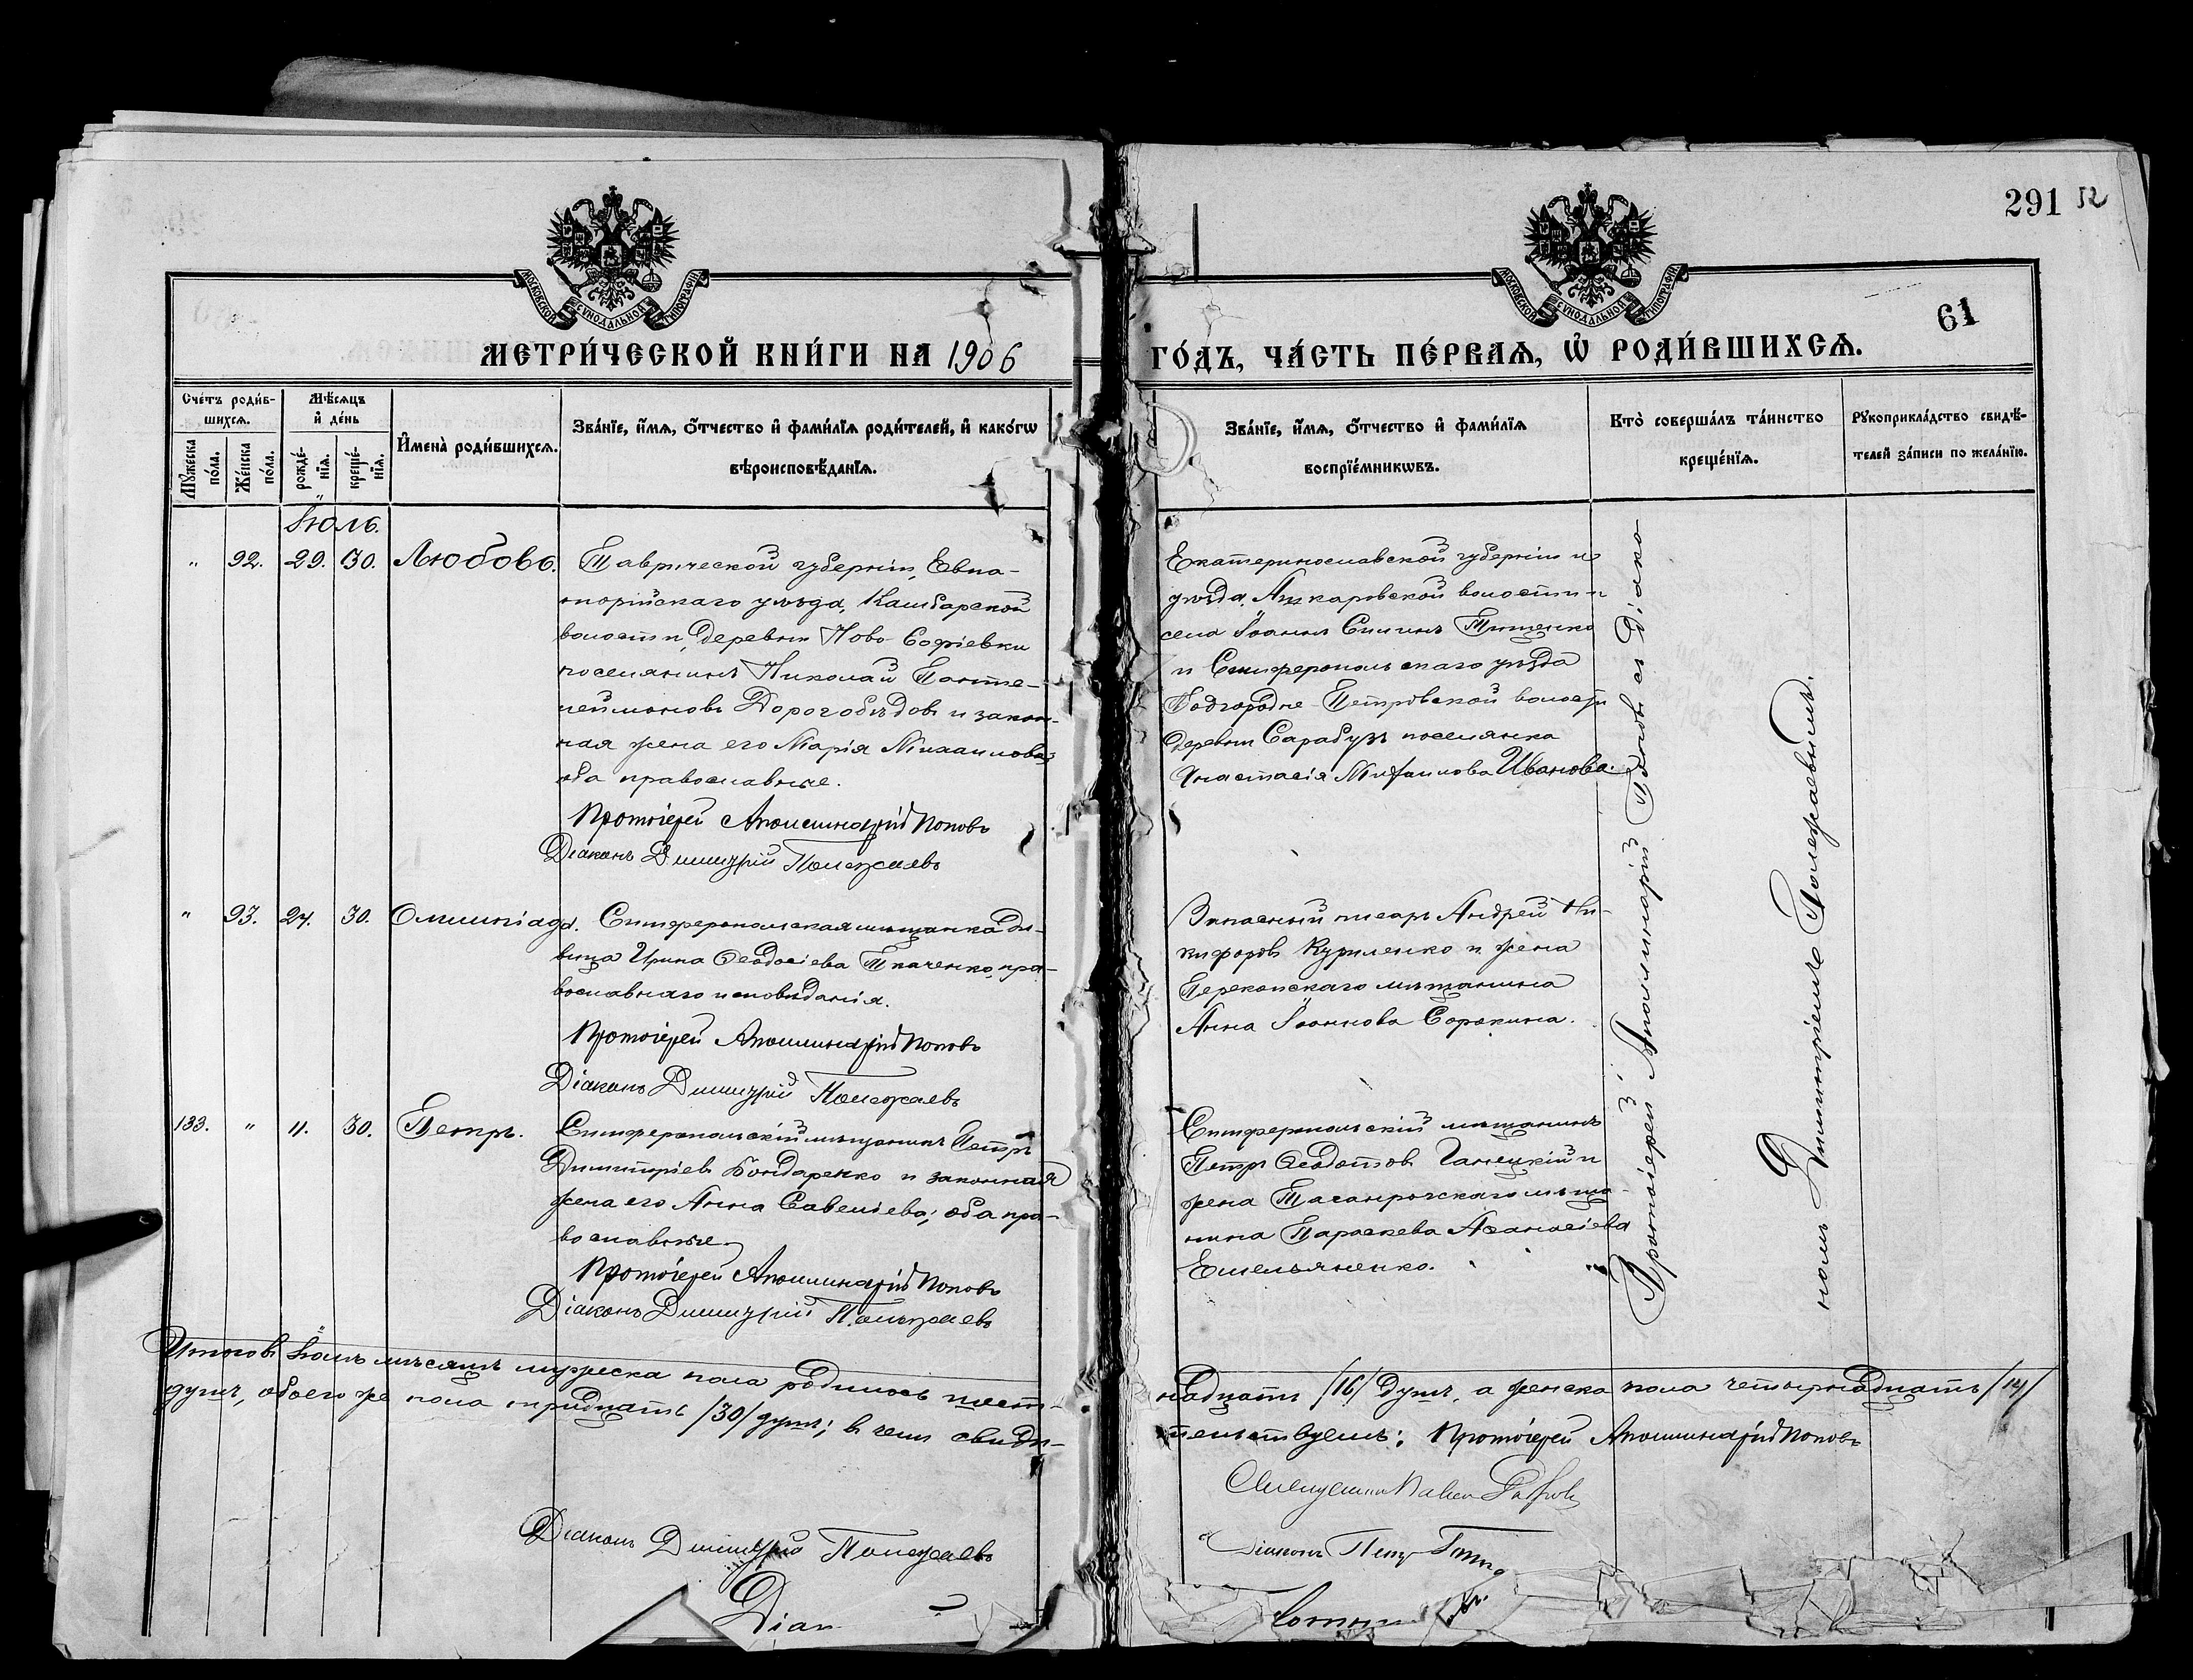 291
61
МОСКОВСКОЙ СѴНОДАЛЬНОЙ ТИПОГРАФІИ
МОСКОВСКОЙ СѴНОДАЛЬНОЙ ТИПОГРАФІИ
МЕТРИ́ЧЕСКОЙ КНИ́ГИ НА 1906
ГО́ДЪ, ЧА́СТЬ ПЕ́РВАѦ, Ѡ҆ РОДИ́ВШИХСѦ.
Сче́тъ роди́в-
шихсѧ.
Мꙋ́жеска
по́ла.
Же́нска
по́ла.
Мѣ́сѧцъ
и҆ де́нь
рожде́-
нїѧ.
креще́-
нїѧ.
И҆мена̀ роди́вшихсѧ.
Зва́нїе, и҆́мѧ, ѻ҆́тчество и҆ фамѝлїѧ роди́телей, и҆ како́гѡ
вѣроисповѣ́данїѧ.
Зва́нїе, и҆́мѧ, ѻ҆́тчество и҆ фамѝлїѧ
воспрїе́мникѡвъ.
Кто̀ соверша́лъ та́инство
креще́нїѧ.
Рꙋкоприкла́дство свидѣ́-
телей за́писи по жела́нїю.
Іюль.
" 92. 29. 30. Любовь.
Таврической губерніи, Евпа-
торійскаго уѣзда, Камбарской
волости, деревни Ново-Софіевки
поселянинъ Николай Панте-
леймоновъ Дорогобѣдовъ и закон-
ная жена его Марія Михаилова;
оба православные.
Протоіерей Аполлинарій Поповъ
Діаконъ Димитрій Полежаевъ
Екатеринославской губерніи и
уѣзда, волости и
села Іоаннъ Тищенко
и Симферопольскаго уѣзда
Подгородне-Петровской волости
деревни Сарабузъ поселянка
Анастасія Михаилова Иванова.
" 93. 24. 30. Олимпіада.
Симферопольская мѣщанка дѣ-
вица Ирина Ѳеодосіева Ткаченко, пра-
вославнаго исповѣданія.
Протоіерей Аполлинарій Поповъ
Діаконъ Димитрій Полежаевъ
Запасный писарь Андрей Ни-
кифоровъ Куриленко и жена
Перекопскаго мѣщанина
Анна Іоаннова Сорокина.
133. " 11. 30. Петръ.
Симферопольскій мѣщанинъ Петръ
Димитріевъ Бондаренко и законная
жена его Анна Савеліева; оба пра-
вославные.
Протоіерей Аполлинарій Поповъ
Діаконъ Димитрій Полежаевъ
Симферопольскій мѣщанинъ
Петръ Ѳеодотовъ Ганецкій и
жена Таганрогскаго мѣща-
нина Параскева Аѳанасіева
Емельяненко.
Протоіерей Аполлинарій Поповъ съ діако-
номъ Димитріемъ Полежаевымъ.
Итого въ Іюлѣ мѣсяцѣ мужеска пола родилось шест-
надцать /16/ душъ, а женска пола четырнадцать /14/
душъ, обоего же пола тридцать /30/ душъ; въ чемъ свидѣ-
тельствуемъ: Протоіерей Аполлинарій Поповъ
Діаконъ Димитрій Полежаевъ
Діаконъ Петръ
Діак